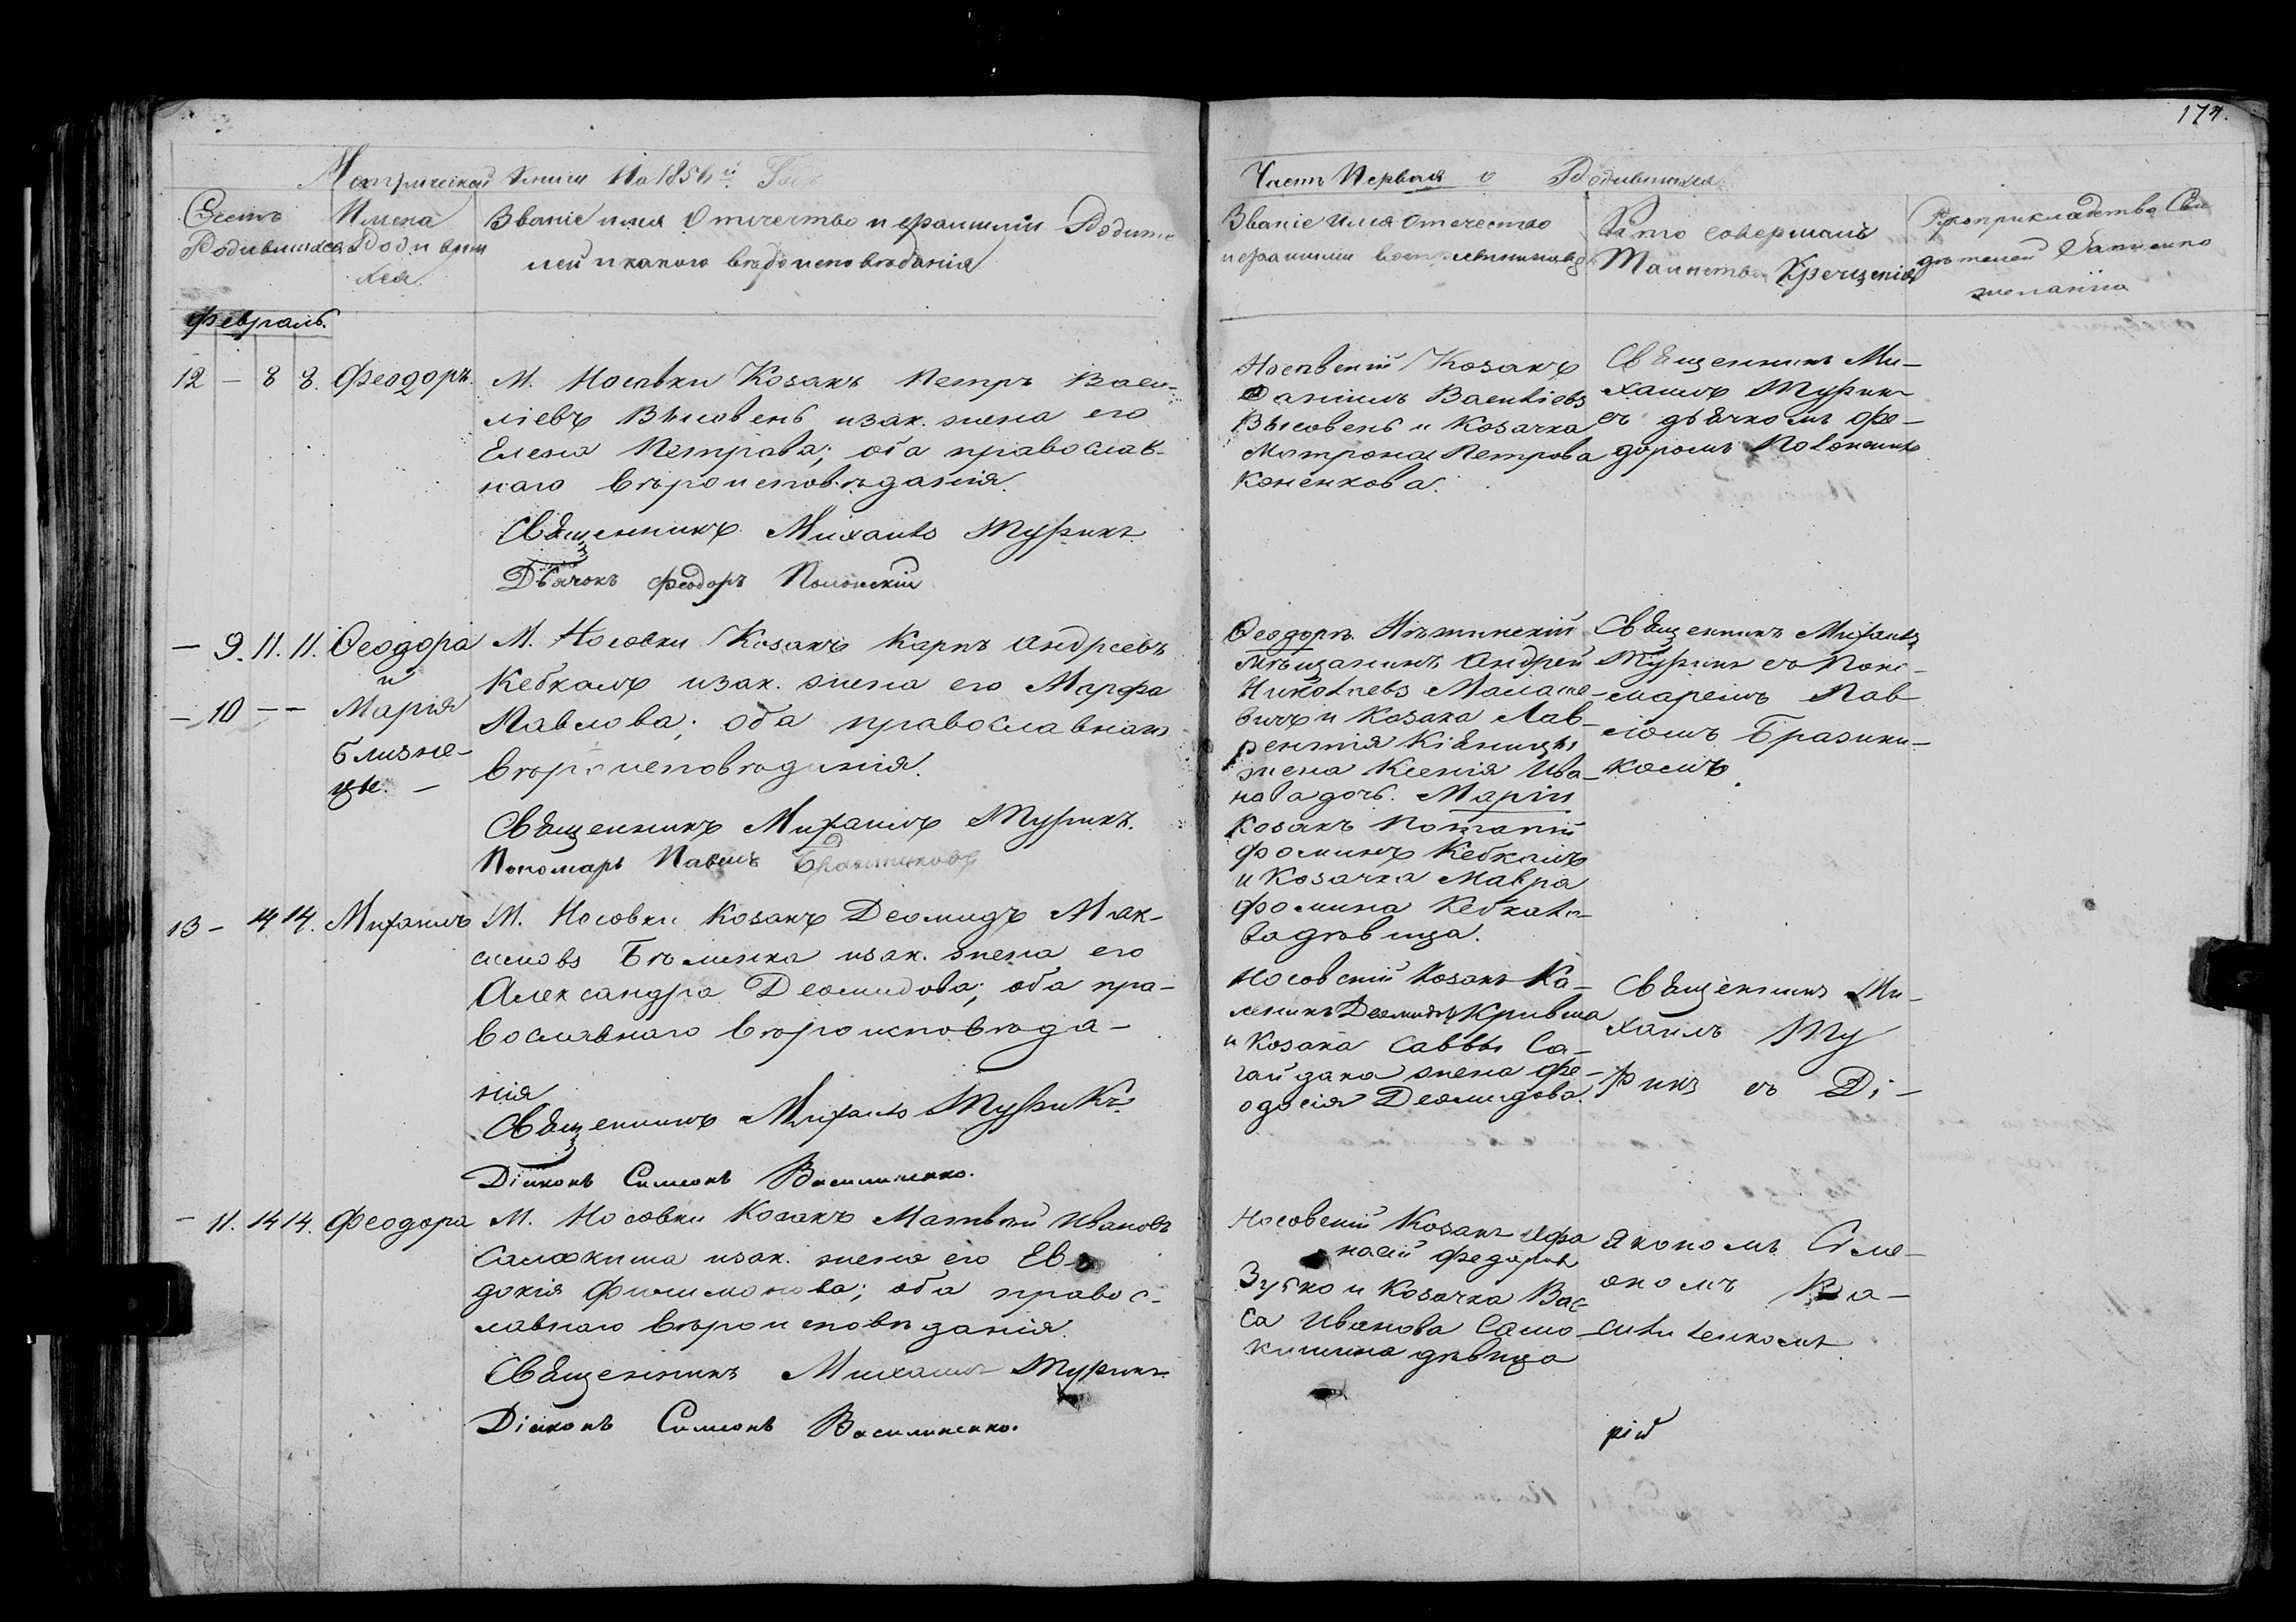 174.
Метрической книги На 1854й Годъ
Часть Первая о Родившихся
Счетъ
Родившихся
Имена
Родивши
хся.
Званіе имя Отечество и фамиліи Родите
лей и какого вѣроисповѣданія
Званіе имя Отечество
и фамиліи воспріемниковъ
Кто совершалъ
Таинство Крещенія
Рукоприкладство Сви
дѣтелей Записи по
желанію
Февраль.
12 – 8 8. Феодоръ.
М. Носовки Козакъ Петръ Васи-
ліевъ Высовень изак. жена его
Елена Петрова; оба православ-
наго вѣроисповѣданія.
Священникъ Михаилъ Турикъ
Дьячокъ Феодоръ Полонскій
Носовскій Козакъ
Даніилъ Василіевъ
Высовень и Козачка
Матрона Петрова
Коненкова.
Священникъ Ми-
хаилъ Турикъ
съ дьячкомъ Фе-
доромъ Полонскимъ
– 9. 11. 11. Ѳеодора
и
– 10 – – Марія
близне-
цы. –
М. Носовки Козакъ Карпъ Андреевъ
Кебкалъ изак. жена его Марфа
Павлова; оба православнаго
вѣроисповѣданія.
Священникъ Михаилъ Турикъ.
Пономарь Павелъ Бразниковъ
Ѳеодоры Нѣжинскій
мѣщанинъ Андрей
Николаевъ Малаше-
вичъ и Козака Лав-
рентія Кіяницы
жена Ксенія Ива-
нова дочь. Маріи
Козакъ Потапій
Фоминъ Кебкалъ
и Козачка Мавра
Фомина Кебкало-
ва дѣвица.
Священникъ Михаилъ
Турикъ съ Поно-
маремъ Пав-
ломъ Бразни-
комъ.
13 – 14 14. Михаилъ
М. Носовки Козакъ Деомидъ Мак-
симовъ Бѣленка изак. жена его
Александра Деомидова; оба пра-
вославнаго вѣроисповѣда-
нія
Священникъ Михаилъ Турикъ
Діяконъ Симеонъ Василиненко.
Носовскій Козакъ Ка-
леникъ Деомидовъ Кривша
и Козака Саввы Са-
гайдака жена Фе-
одосія Деомидова.
Священникъ Ми-
хаилъ Ту
рикъ съ Ді-
– 11. 14 14. Феодора
М. Носовки Козакъ Матвѣй Ивановъ
Самокиша изак. жена его Ев-
докія Филимонова; оба правос-
лавнаго вѣроисповѣданія.
Священникъ Михаилъ Турикъ
Діяконъ Симеонъ Василиненко.
Носовскій Козакъ Афа
насій Федоровъ
Зубко и Козачка Вас-
са Иванова Само-
кишина дѣвица
якономъ Симе-
ономъ Ва-
силиненкомъ